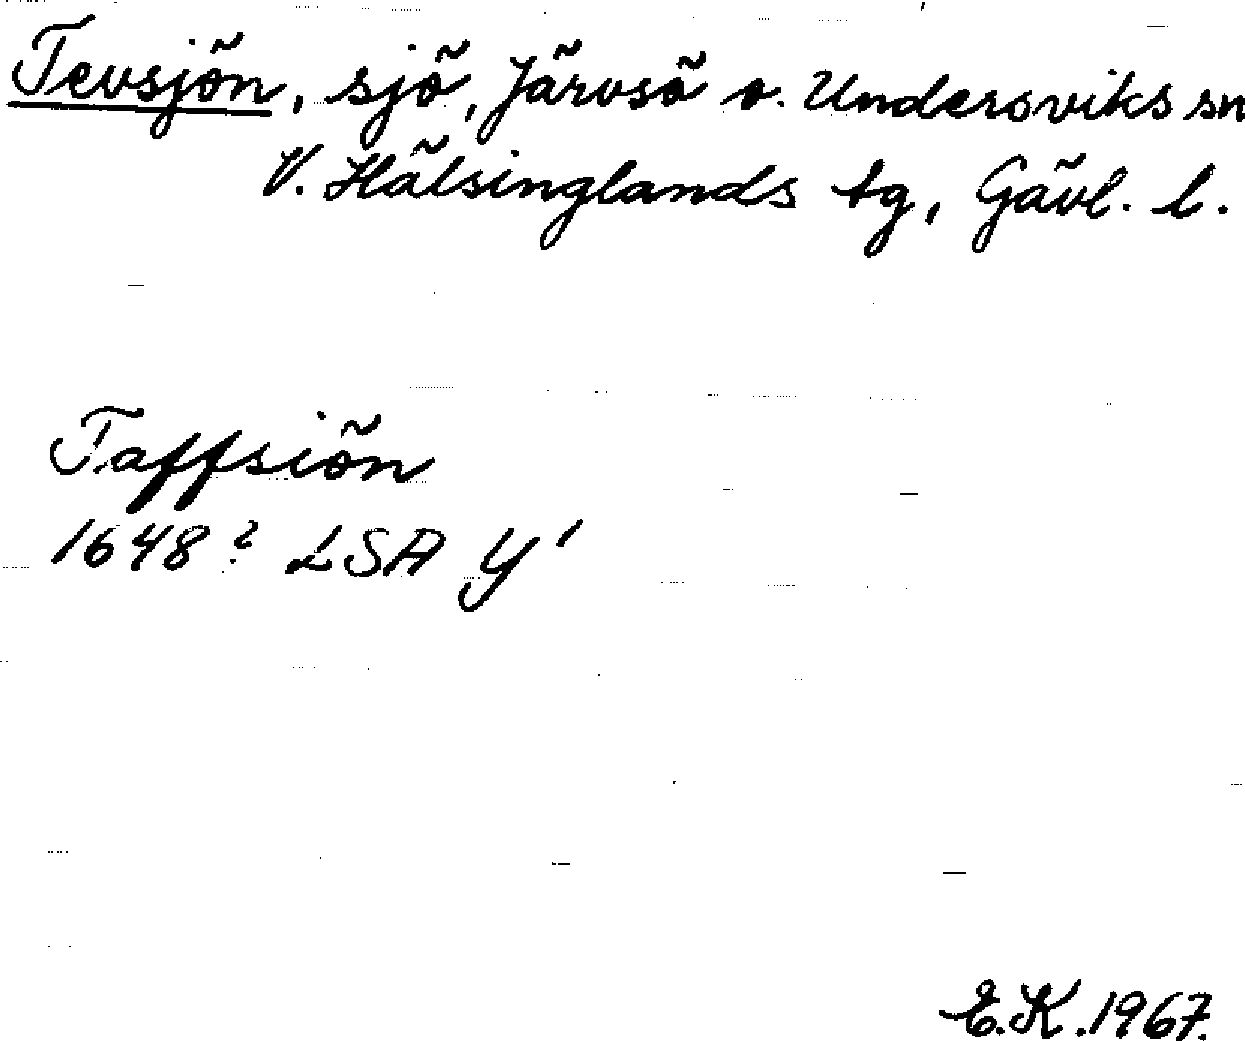 Tevsjön, sjö, Järvsö o. Undersviks sn
V. Hälsinglands tg, Gävl. l.
Taffsiön
1648? LSA Y'
E.K. 1967.